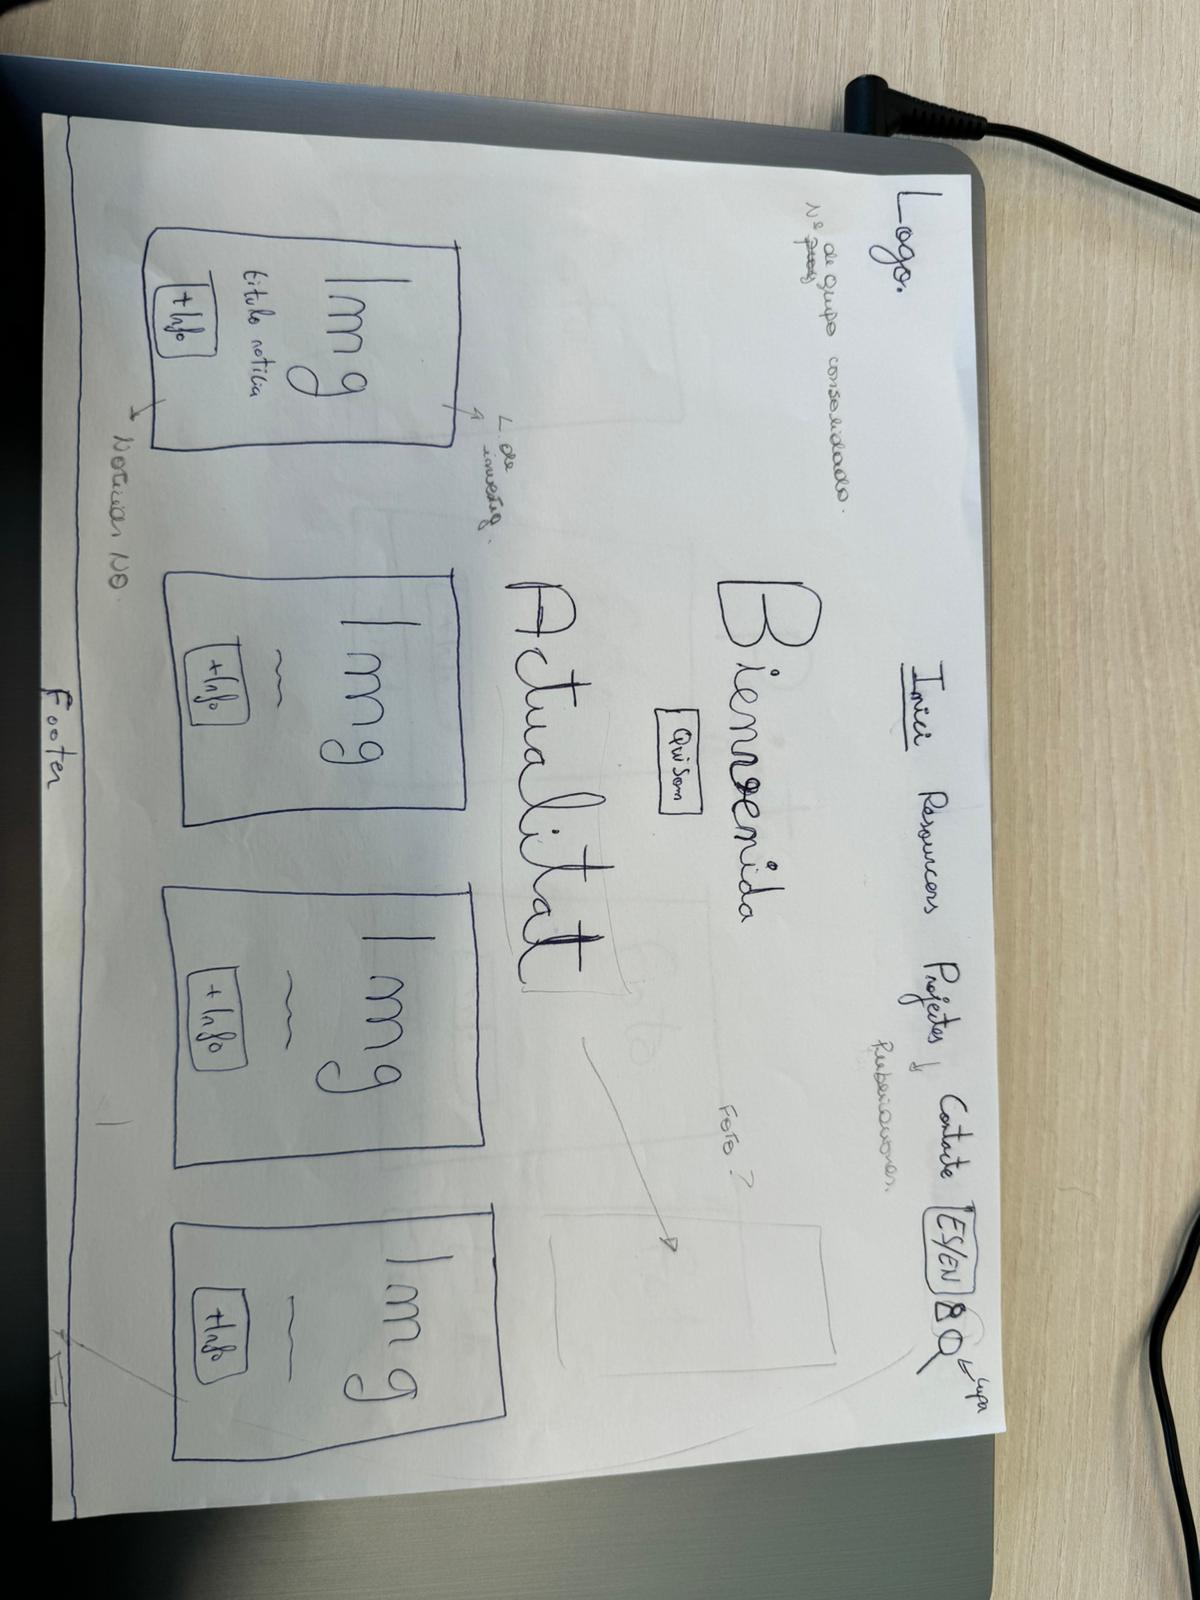 Logo.
Inici Resourcers Projectes Contacte ES/EN
Lupa
Publicaciones.
de grupo consolidado.
Nº
Bienvenida
Foto?
Qui Som
Actualitat
L. de
investig.
Img
titulo noticia
+Info
Img
+Info
Img
+Info
Img
+Info
Noticias NO
Footer